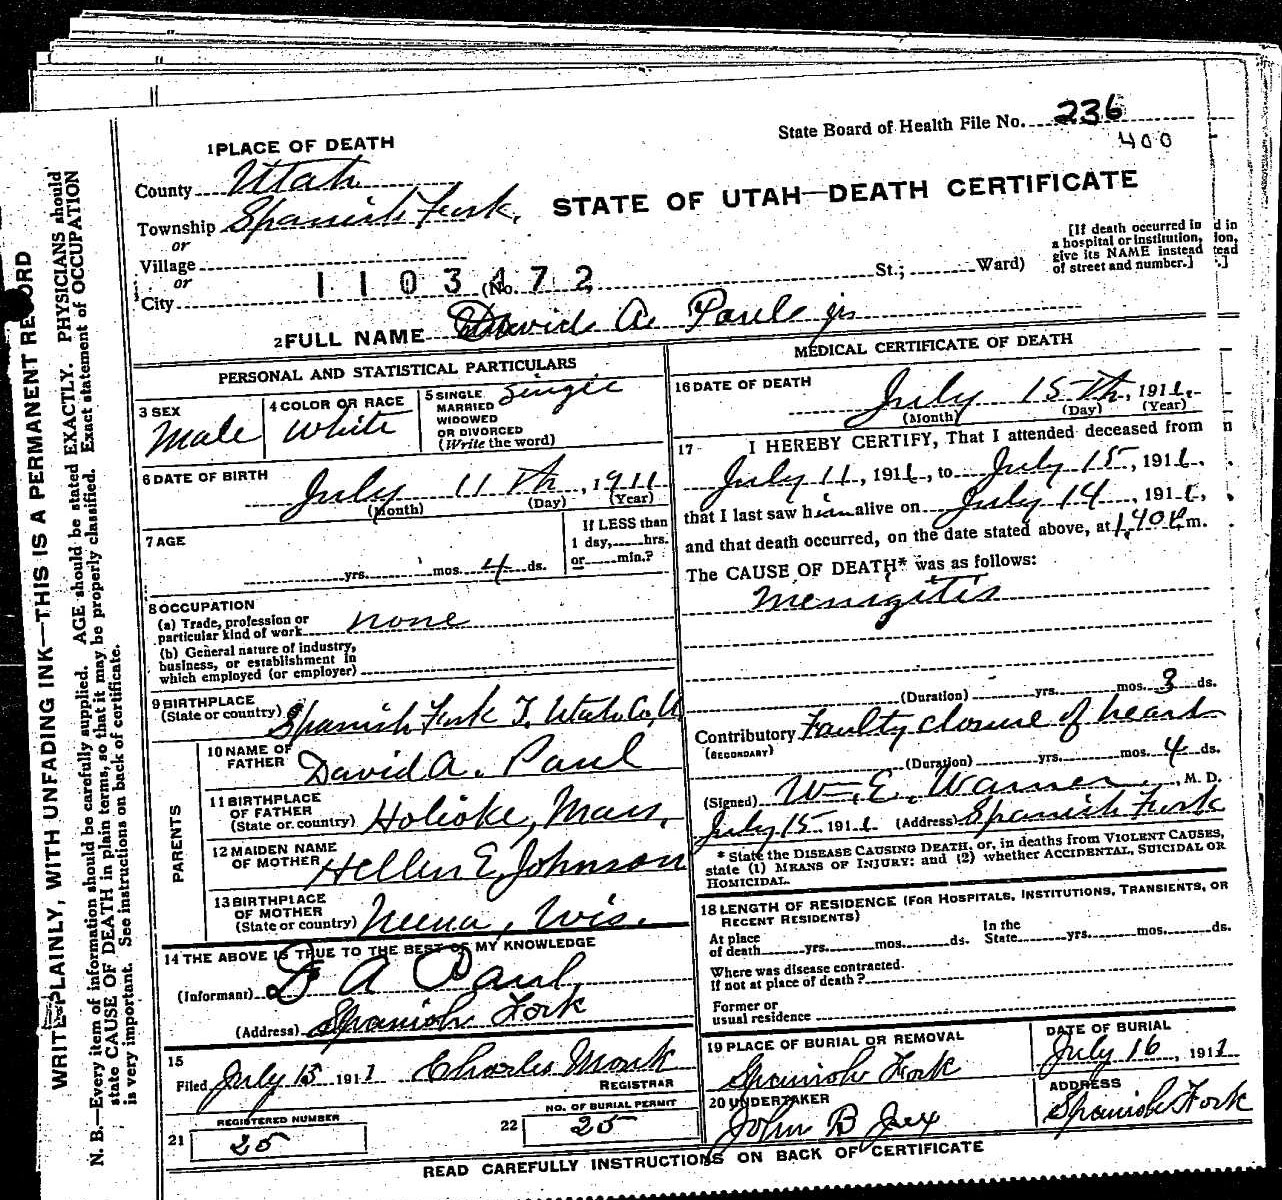 State Board of Health File No. 236
400
1 PLACE OF DEATH
County Utah
STATE OF UTAH—DEATH CERTIFICATE
Township Spanish Fork.
or
Village
or
City
1103472
(No.
St.; Ward)
[If death occurred in
a hospital or institution,
give its NAME instead
of street and number.]
2 FULL NAME David A. Paul jr
PERSONAL AND STATISTICAL PARTICULARS
3 SEX
Male
4 COLOR OR RACE
White
5 SINGLE
MARRIED
WIDOWED
OR DIVORCED
(Write the word)
Single
6 DATE OF BIRTH
July 11th, 1911
(Month) (Day) (Year)
7 AGE
yrs. mos. 4 ds.
If LESS than
1 day, hrs.
or min.?
8 OCCUPATION
(a) Trade, profession or
particular kind of work none
(b) General nature of industry,
business, or establishment in
which employed (or employer)
9 BIRTHPLACE
(State or country) Spanish Fork T. Utah Co, U
PARENTS
10 NAME OF
FATHER David A. Paul
11 BIRTHPLACE
OF FATHER
(State or country) Holioke, Mass.
12 MAIDEN NAME
OF MOTHER Hellen E. Johnson
13 BIRTHPLACE
OF MOTHER
(State or country) Neena, Wis.
14 THE ABOVE IS TRUE TO THE BEST OF MY KNOWLEDGE
(Informant) D A Paul,
(Address) Spanish Fork
15
Filed July 15 1911 Charles Monk
REGISTRAR
21
REGISTERED NUMBER
25
22
NO. OF BURIAL PERMIT
25
MEDICAL CERTIFICATE OF DEATH
16 DATE OF DEATH
July 15th, 1911.
(Month) (Day) (Year)
17 I HEREBY CERTIFY, That I attended deceased from
July 11, 1911, to July 15, 1911.
that I last saw him alive on July 14, 1911,
and that death occurred, on the date stated above, at 1.40 P m.
The CAUSE OF DEATH* was as follows:
Menigitis
(Duration) yrs. mos. 3 ds.
Contributory Faulty closure of heart
(SECONDARY)
(Duration) yrs. mos. 4 ds.
(Signed) Wm. E. Warner M. D.
July 15 1911 (Address) Spanish Fork
* State the DISEASE CAUSING DEATH, or, in deaths from VIOLENT CAUSES,
state (1) MEANS OF INJURY; and (2) whether ACCIDENTAL, SUICIDAL OR
HOMICIDAL.
18 LENGTH OF RESIDENCE (FOR HOSPITALS, INSTITUTIONS, TRANSIENTS, OR
RECENT RESIDENTS)
At place
of death yrs. mos. ds.
In the
State yrs. mos. ds.
Where was disease contracted.
if not at place of death?
Former or
usual residence
19 PLACE OF BURIAL OR REMOVAL
Spanish Fork
DATE OF BURIAL
July 16, 1911
20 UNDERTAKER
John B Jex
ADDRESS
Spanish Fork
READ CAREFULLY INSTRUCTIONS ON BACK OF CERTIFICATE
WRITE PLAINLY, WITH UNFADING INK—THIS IS A PERMANENT RECORD
N. B.—Every item of information should be carefully supplied. AGE should be stated EXACTLY. PHYSICIANS should
state CAUSE OF DEATH in plain terms, so that it may be properly classified. Exact statement of OCCUPATION
is very important. See instructions on back of certificate.